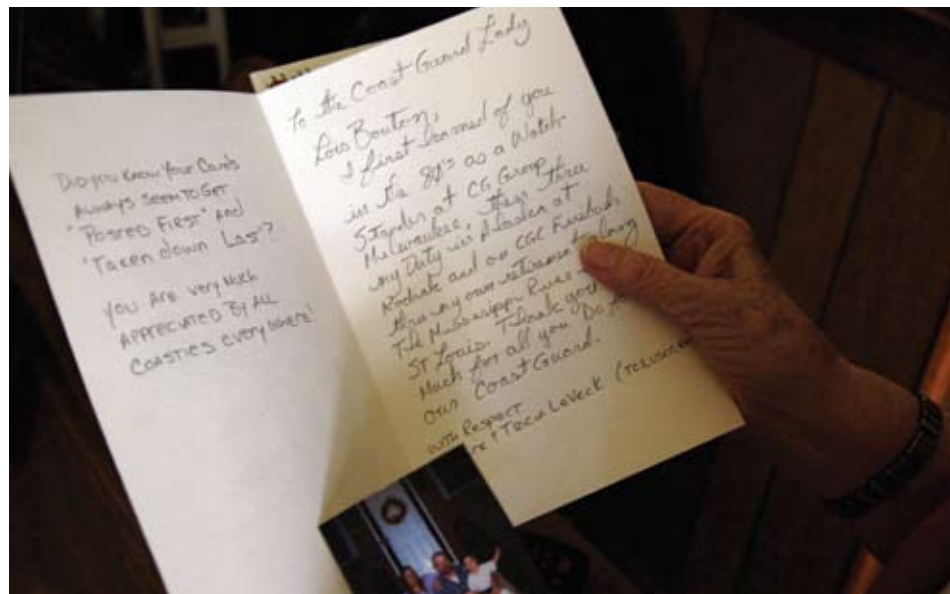 Did you know Your Cards
Always Seem To Get
"Posted First" And
"Taken down Las"?
you Are very Much
Appreciated By All
Coasties everywhere!
To the Coast Guard Lady
Lois Bouton,
I first learned of you
in the 80's as a Watch
Stander at CG Group
Milwaukee, then three
my Duty in Alaska at
Kodiak and on CGC Firebush
thru my own retirement along
The Mississippi River
St Louis. Thank you
Much for all you Do
our Coast Guard.
with Respect
+ Tricia LeVeck